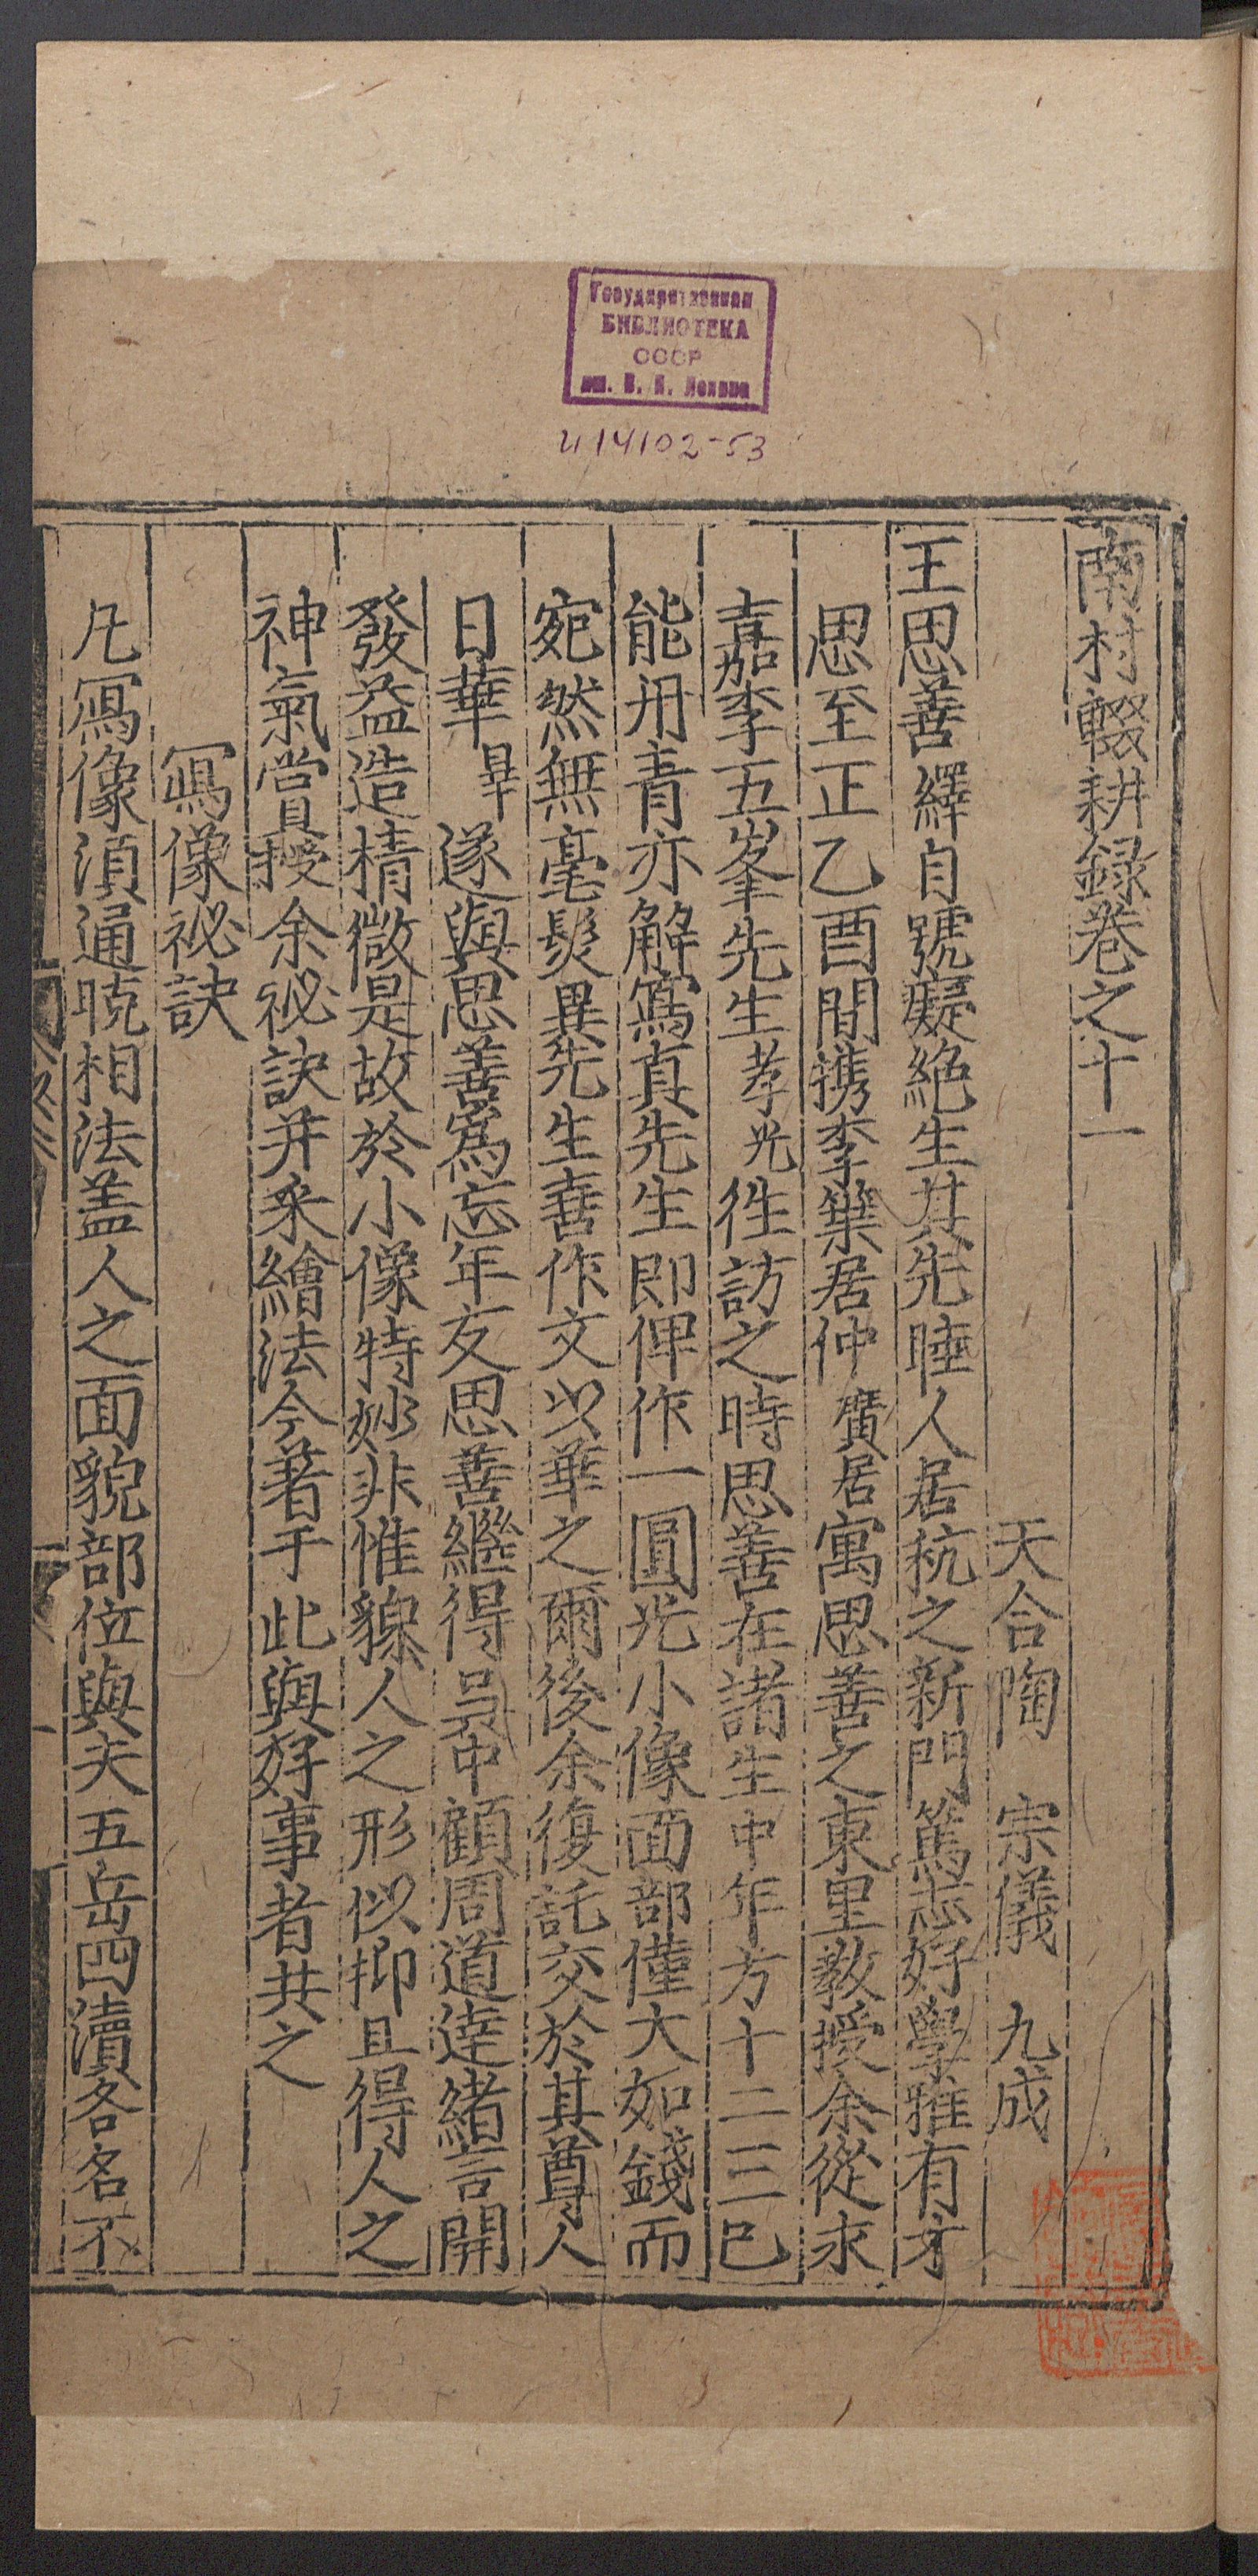 Государственная
БИБЛИОТЕКА
СССР
им. В. И. Ленина
и 14102-53
南村輟耕録卷之十一
天台陶 宗儀 九成
王思善繹自號癡絶生其先睦人居杭之新門篤志好學雅有才
思至正乙酉間携李葉居仲廣居寓思善之東里教授余從求
嘉李五峯先生孝光徃訪之時思善在諸生中年方十二三已
能丹青亦解寫真先生即俾作一圓光小像面部僅大如錢而
宛然無毫髮異先生喜作文以華之爾後余復託交於其尊人
日華曄遂與思善爲忘年友思善繼得吳中顧周道逵緒言開
發益造精微是故於小像特妙非惟貌人之形似抑且得人之
神氣嘗授余祕訣并采繪法今著于此與好事者共之
冩像祕訣
凡冩像須通曉相法盖人之面貌部位與夫五岳四瀆各各不